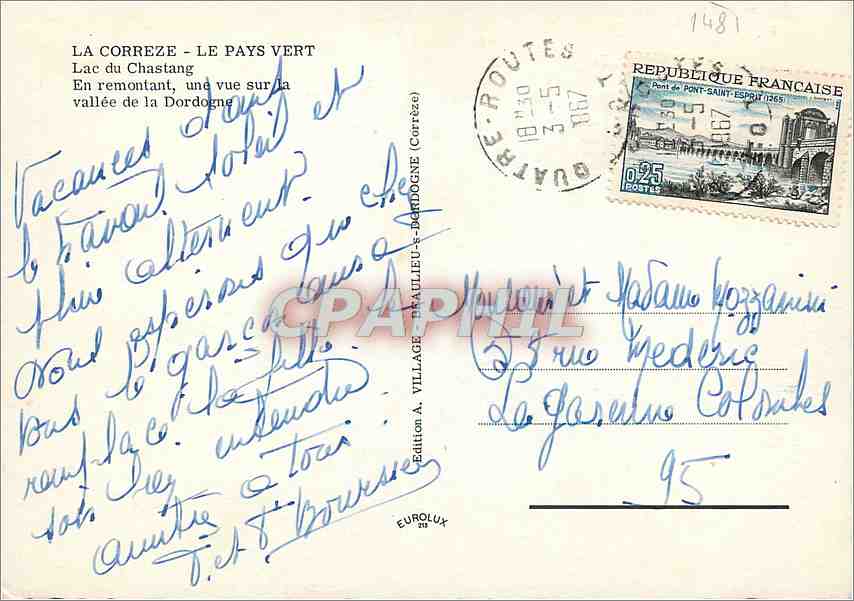 1481
LA CORREZE - LE PAYS VERT
Lac du Chastang
En remontant, une vue sur la
vallée de la Dordogne
Vacances dont
le Favori Soleil et
pluie alternent.
Nous espérons que chez
vous le garçon aura
remplacé la fille
bien entendu
amitié à tous
P. et F. Boursier
Edition A. VILLAGE, BEAULIEU-s-DORDOGNE (Corrèze)
EUROLUX
213
QUATRE-ROUTES
18H30
3-5
1967
LOT
REPUBLIQUE FRANÇAISE
Pont de PONT-SAINT-ESPRIT (1265)
0,25
POSTES
CPAPHIL
Monsieur et Madame Mozzanini
53 rue Mederic
La Garenne Colombes
95